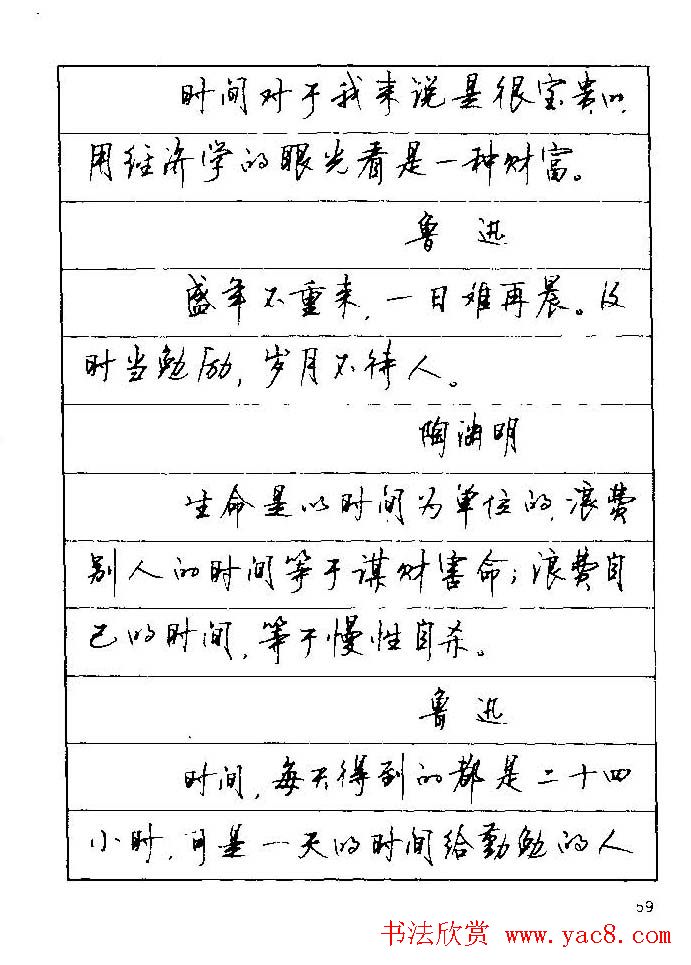 时间对于我来说是很宝贵的,
用经济学的眼光看是一种财富。
鲁迅
盛年不重来,一日难再晨。及
时当勉励,岁月不待人。
陶渊明
生命是以时间为单位的,浪费
别人的时间等于谋财害命;浪费自
己的时间,等于慢性自杀。
鲁迅
时间,每天得到的都是二十四
小时,可是一天的时间给勤勉的人
59
书法欣赏 www.yac8.com